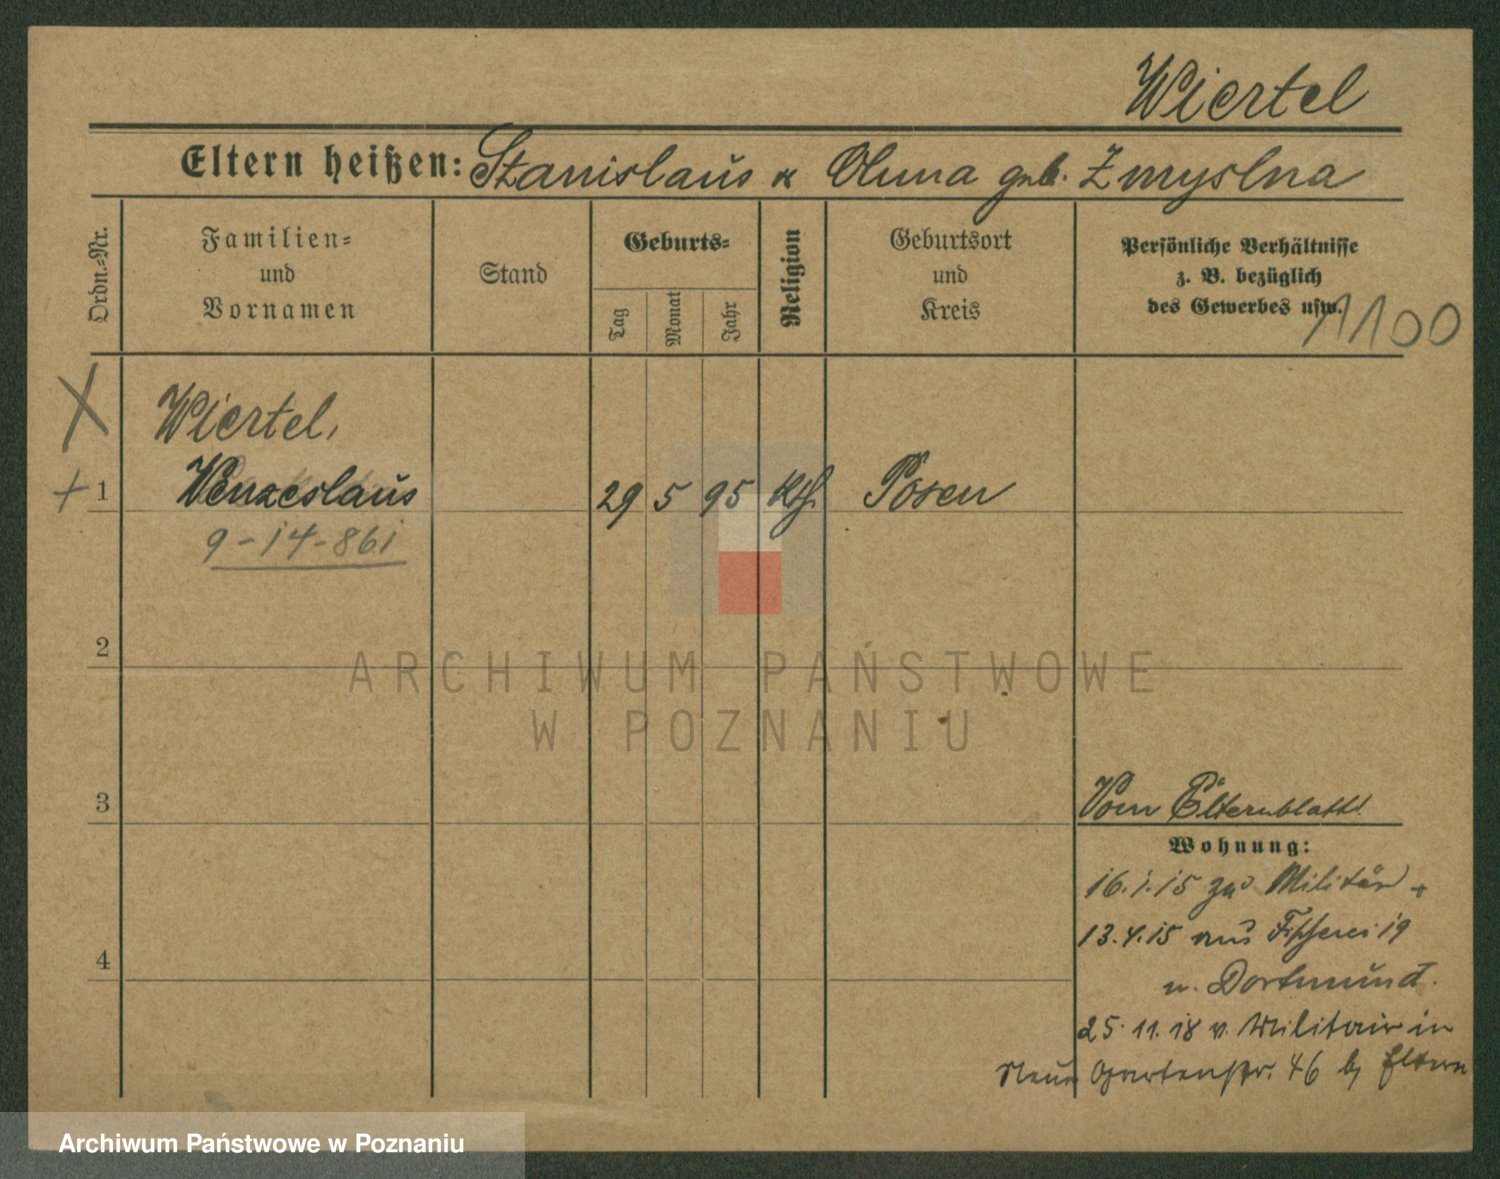 Wiertel
Eltern heißen: Stanislaus u Anna geb. Zmyslna
Ordn.-Nr.
Familien-
und
Vornamen
Stand
Geburts-
Tag
Monat
Jahr
Religion
Geburtsort
und
Kreis
Persönliche Verhältnisse
z. B. bezüglich
des Gewerbes usw.
1100
X
Wiertel,
+ 1 Wenzeslaus 29 5 95 kth. Posen
9-14-861
2
3
4
Vom Elternblatt!
Wohnung:
16.1.15 zu Militär +
13.4.15 aus Fischerei 19
n. Dortmund.
25.11.18 v. Militair in
Neue Gartenstr. 46 b/ Eltern
ARCHIWUM PAŃSTWOWE
W POZNANIU
Archiwum Państwowe w Poznaniu